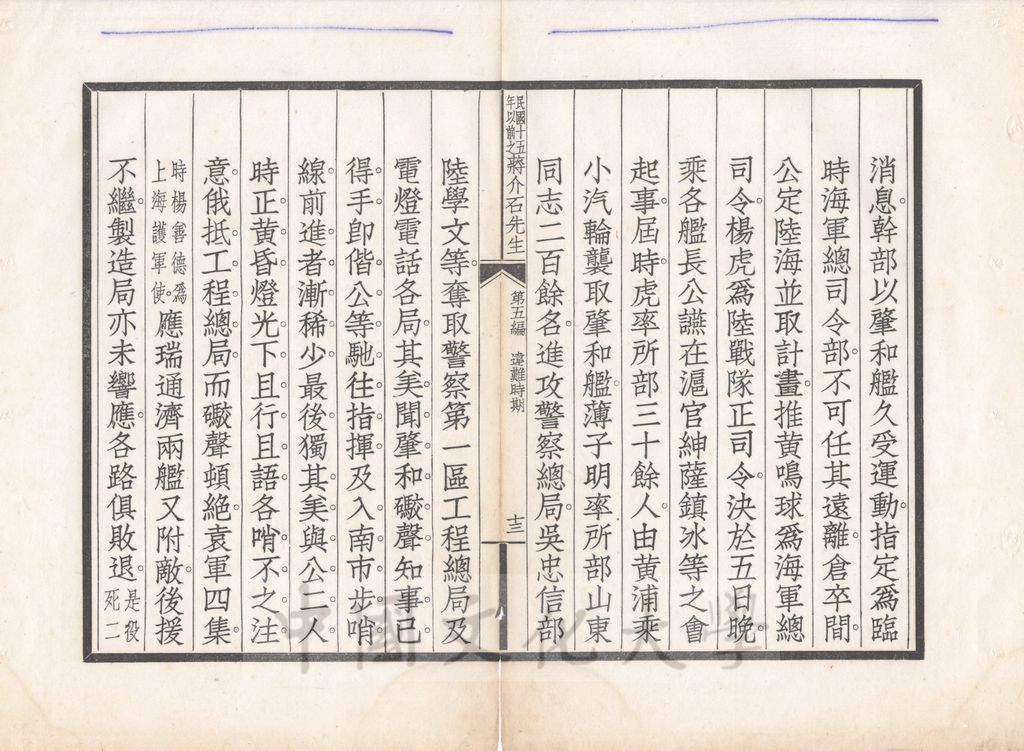 消息。幹部以肇和艦久受運動。指定爲臨
時海軍總司令部。不可任其遠離。倉卒間。
公定陸海並取計畫。推黄鳴球爲海軍總
司令。楊虎爲陸戰隊正司令。決於五日晚。
乘各艦長公讌在滬官紳薩鎮冰等之會
起事。屆時。虎率所部三十餘人。由黄浦乘
小汽輪襲取肇和艦。薄子明率所部山東
同志二百餘名。進攻警察總局。吳忠信部
民國十五年以前之蔣介石先生
第五編 違難時期
十三
陸學文等。奪取警察第一區工程總局及
電燈電話各局。其美聞肇和礮聲。知事已
得手。即偕公等馳往指揮。及入南市步哨
線。前進者漸稀少。最後獨其美與公二人。
時正黄昏。燈光下且行且語。各哨不之注
意。俄抵工程總局。而礮聲頓絕。袁軍四集。
時楊善德爲
上海護軍使。
應瑞通濟兩艦又附敵。後援
不繼。製造局亦未響應。各路俱敗退。
是役
死二
中國文化大學